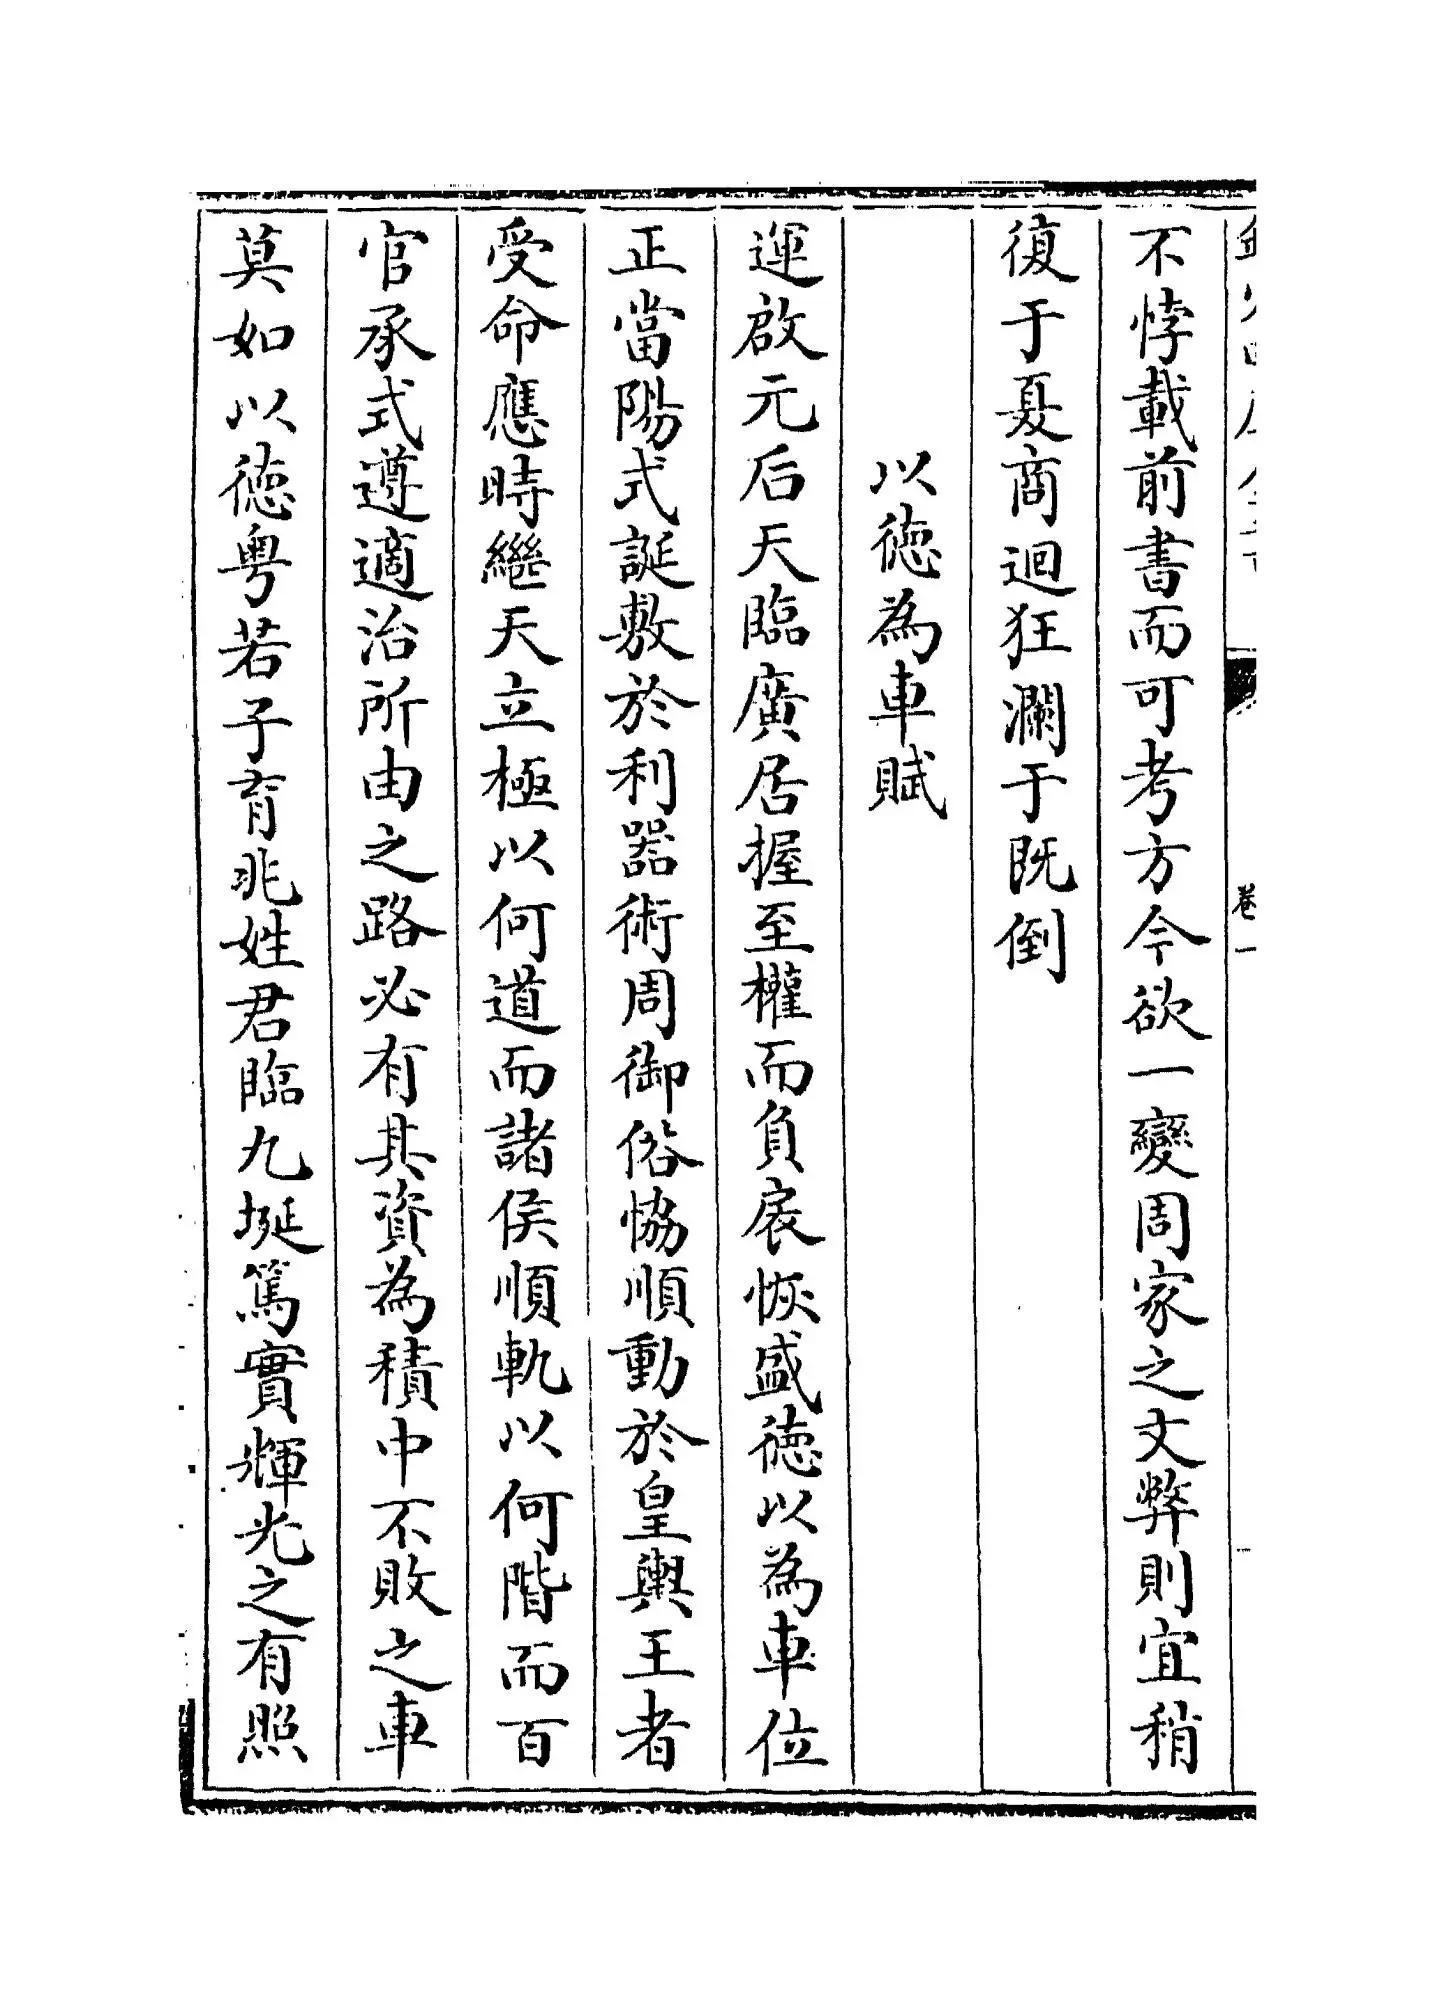 不悖載前書而可考方今欲一變周家之文弊則宜稍
復于夏商迴狂瀾于既倒
以徳為車賦
運啟元后天臨廣居握至權而負扆恢盛徳以為車位
正當陽式誕敷於利器術周御俗恊順動於皇輿王者
受命應時繼天立極以何道而諸侯順軌以何階而百
官承式遵適治所由之路必有其資為積中不敗之車
莫如以徳粤若子育兆姓君臨九埏篤實輝光之有照
卷一